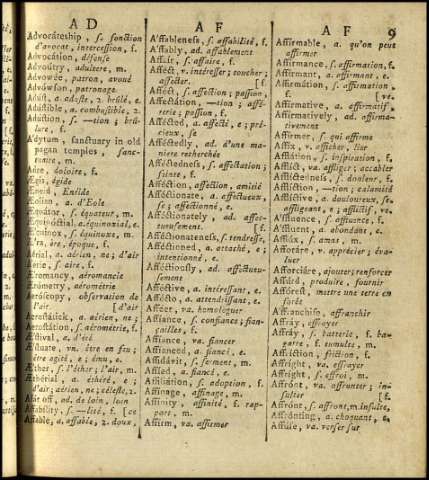 A D
Advocáteship, s. fonction
d'avocat, intercession, f.
Advocátion, défense
Advoútry, adultere, m.
Advowée, patron, avoué
Advówson, patronage
Adúst, a. aduste, 2. brûlé, e.
Adústible, a. combustible, 2.
Adústion, s. —tion; brû-
lure, f.
A'dytum, sanctuary in old
pagan temples, sanc-
tuaire, m.
Adze, doloire, f.
Ægis, égide
Æneid, Enéide
Æólian, a. d'Eole
Æquátor, s. équateur, m.
Æquinóctial, a. équinoxial, e.
Æquinox, s. équinoxe, m.
Æ'ra, ère, époque, f.
Aërial, a. aérien, ne; d'air
Aërie, s. aire, f.
Aéromancy, aéromancie
Aërómetry, aérométrie
Aëróscopy, observation de
l'air [d'air
Aerostátick, a. aérien, ne;
Aerostátion, s. aérométrie, f.
Æstival, e. d'été
Æstuate, vn. être en feu;
être agité, e; ému, e.
Æther, s. l'éther; l'air, m.
Æthérial, a. éthéré, e;
d'air; aérien, ne; céleste, 2.
Afár off, ad. de loin, loin
Affability, s. —lité, f. [ce
Affable, a. affable, 2. doux,
A F
A'ffableness, s. affabilité, f.
A'ffably, ad. affablement
Affair, s. affaire, f.
Afféct, v. intéresser; toucher;
affecter. [passion, f.
Afféct, s. affection
Affectátion, —tion; affé-
terie; passion, f.
Afféctéd, a. affecté, e; pré-
cieux, se
Afféctedly, ad. d'une ma-
niere recherchée
Afféctedness, s. affectation;
feinte, f.
Afféction, affection, amitié
Afféctionate, a. affectueux,
se; affectionné, e.
Afféctionately, ad. affec-
tueusement. [f.
Afféctionateness, s. tendresse,
Afféctioned, a. attaché, e;
intentionné, e.
Afféctiously, ad. affectueu-
sement
Afféctive, a. intéressant, e.
Affécto, a. attendrissant, e.
Affeer, va. homologuer
Affiance, s. confiance; fian-
çailles, f.
Affiance, va. fiancer
Affianced, a. fiancé, e.
Affidávit, s. serment, m.
Affied, a. fiancé, e.
Affiliátion, s. adoption, f.
Affinage, affinage, m.
Affinity, affinité, f. rap-
port, m.
Affirm, va. affirmer
A F 9
Affirmable, a. qu'on peut
affirmer
Affirmance, s. affirmation, f.
Affirmant, a. affirmant, e.
Affirmátion, s. affirmation,
f. [ve.
Affirmative, a. affirmatif
Affirmatively, ad. affirma-
tivement
Affirmer, s. qui affirme
Affix, v. afficher, lier
Afflátion, s. inspiration, f.
Afflict, va. affliger; accabler
Afflictedness, s. douleur, f.
Affliction, —tion; calamité
Afflictive, a. douloureux, se.
affligeant, e; afflictif, ve.
A'ffluence, s. affluence, f.
A'ffluent, a. abondant, e.
Afflux, s. amas, m.
Afforáre, v. apprécier; éva-
luer
Afforciáre, ajouter; renforcer
Affórd, produire, fournir
Affórest, mettre une terre en
forêt
Affranchise, affranchir
Affráy, effrayer
Affráy, s. batterie, f. ba-
garre, f. tumulte, m.
Affriction, friction, f.
Affright, va. effrayer
Affright, s. effroi, m.
Affrónt, va. affronter; in-
sulter [f.
Affrónt, s. affront, m. insulte,
Affrónting, a. choquant, e.
Affúse, va. verser sur